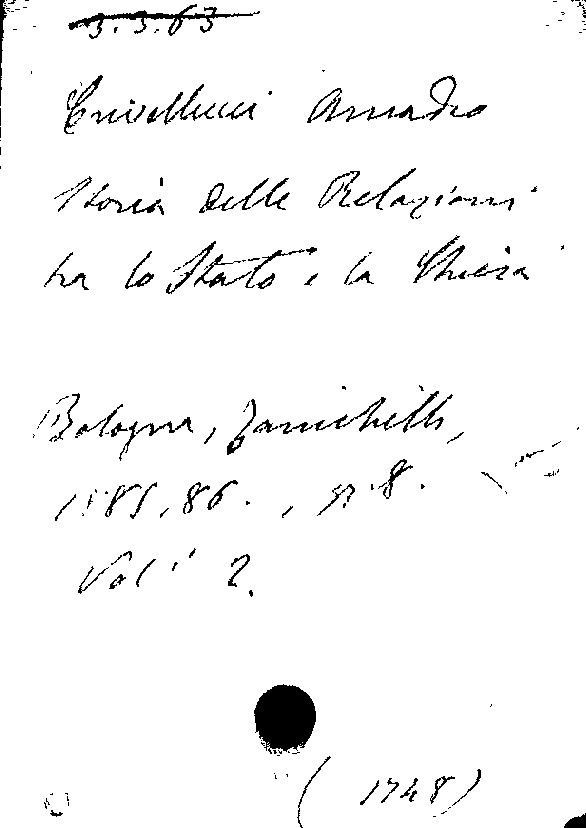 3.3.63
Crivellucci Amadeo
Storia delle Relazioni
tra lo Stato e la Chiesa
Bologna, Zanichelli,
1885,86. , 8.
Vol i 2.
(1748)